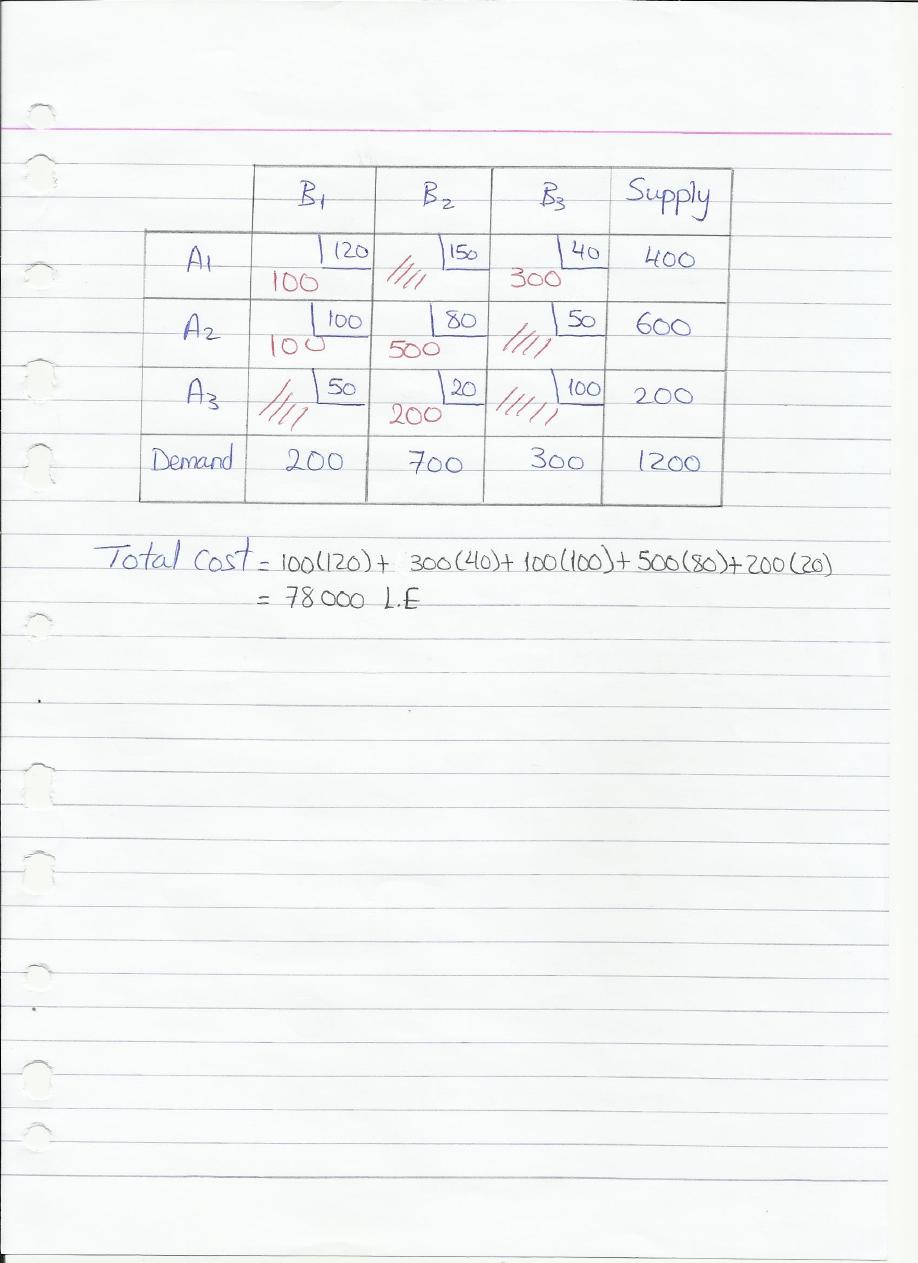 B1 B2 B3 Supply
A1 120 150 40 400
100 300
A2 100 80 50 600
100 500
A3 50 20 100 200
200
Demand 200 700 300 1200
Total Cost = 100(120) + 300(40) + 100(100) + 500(80) + 200(20)
= 78000 L.E